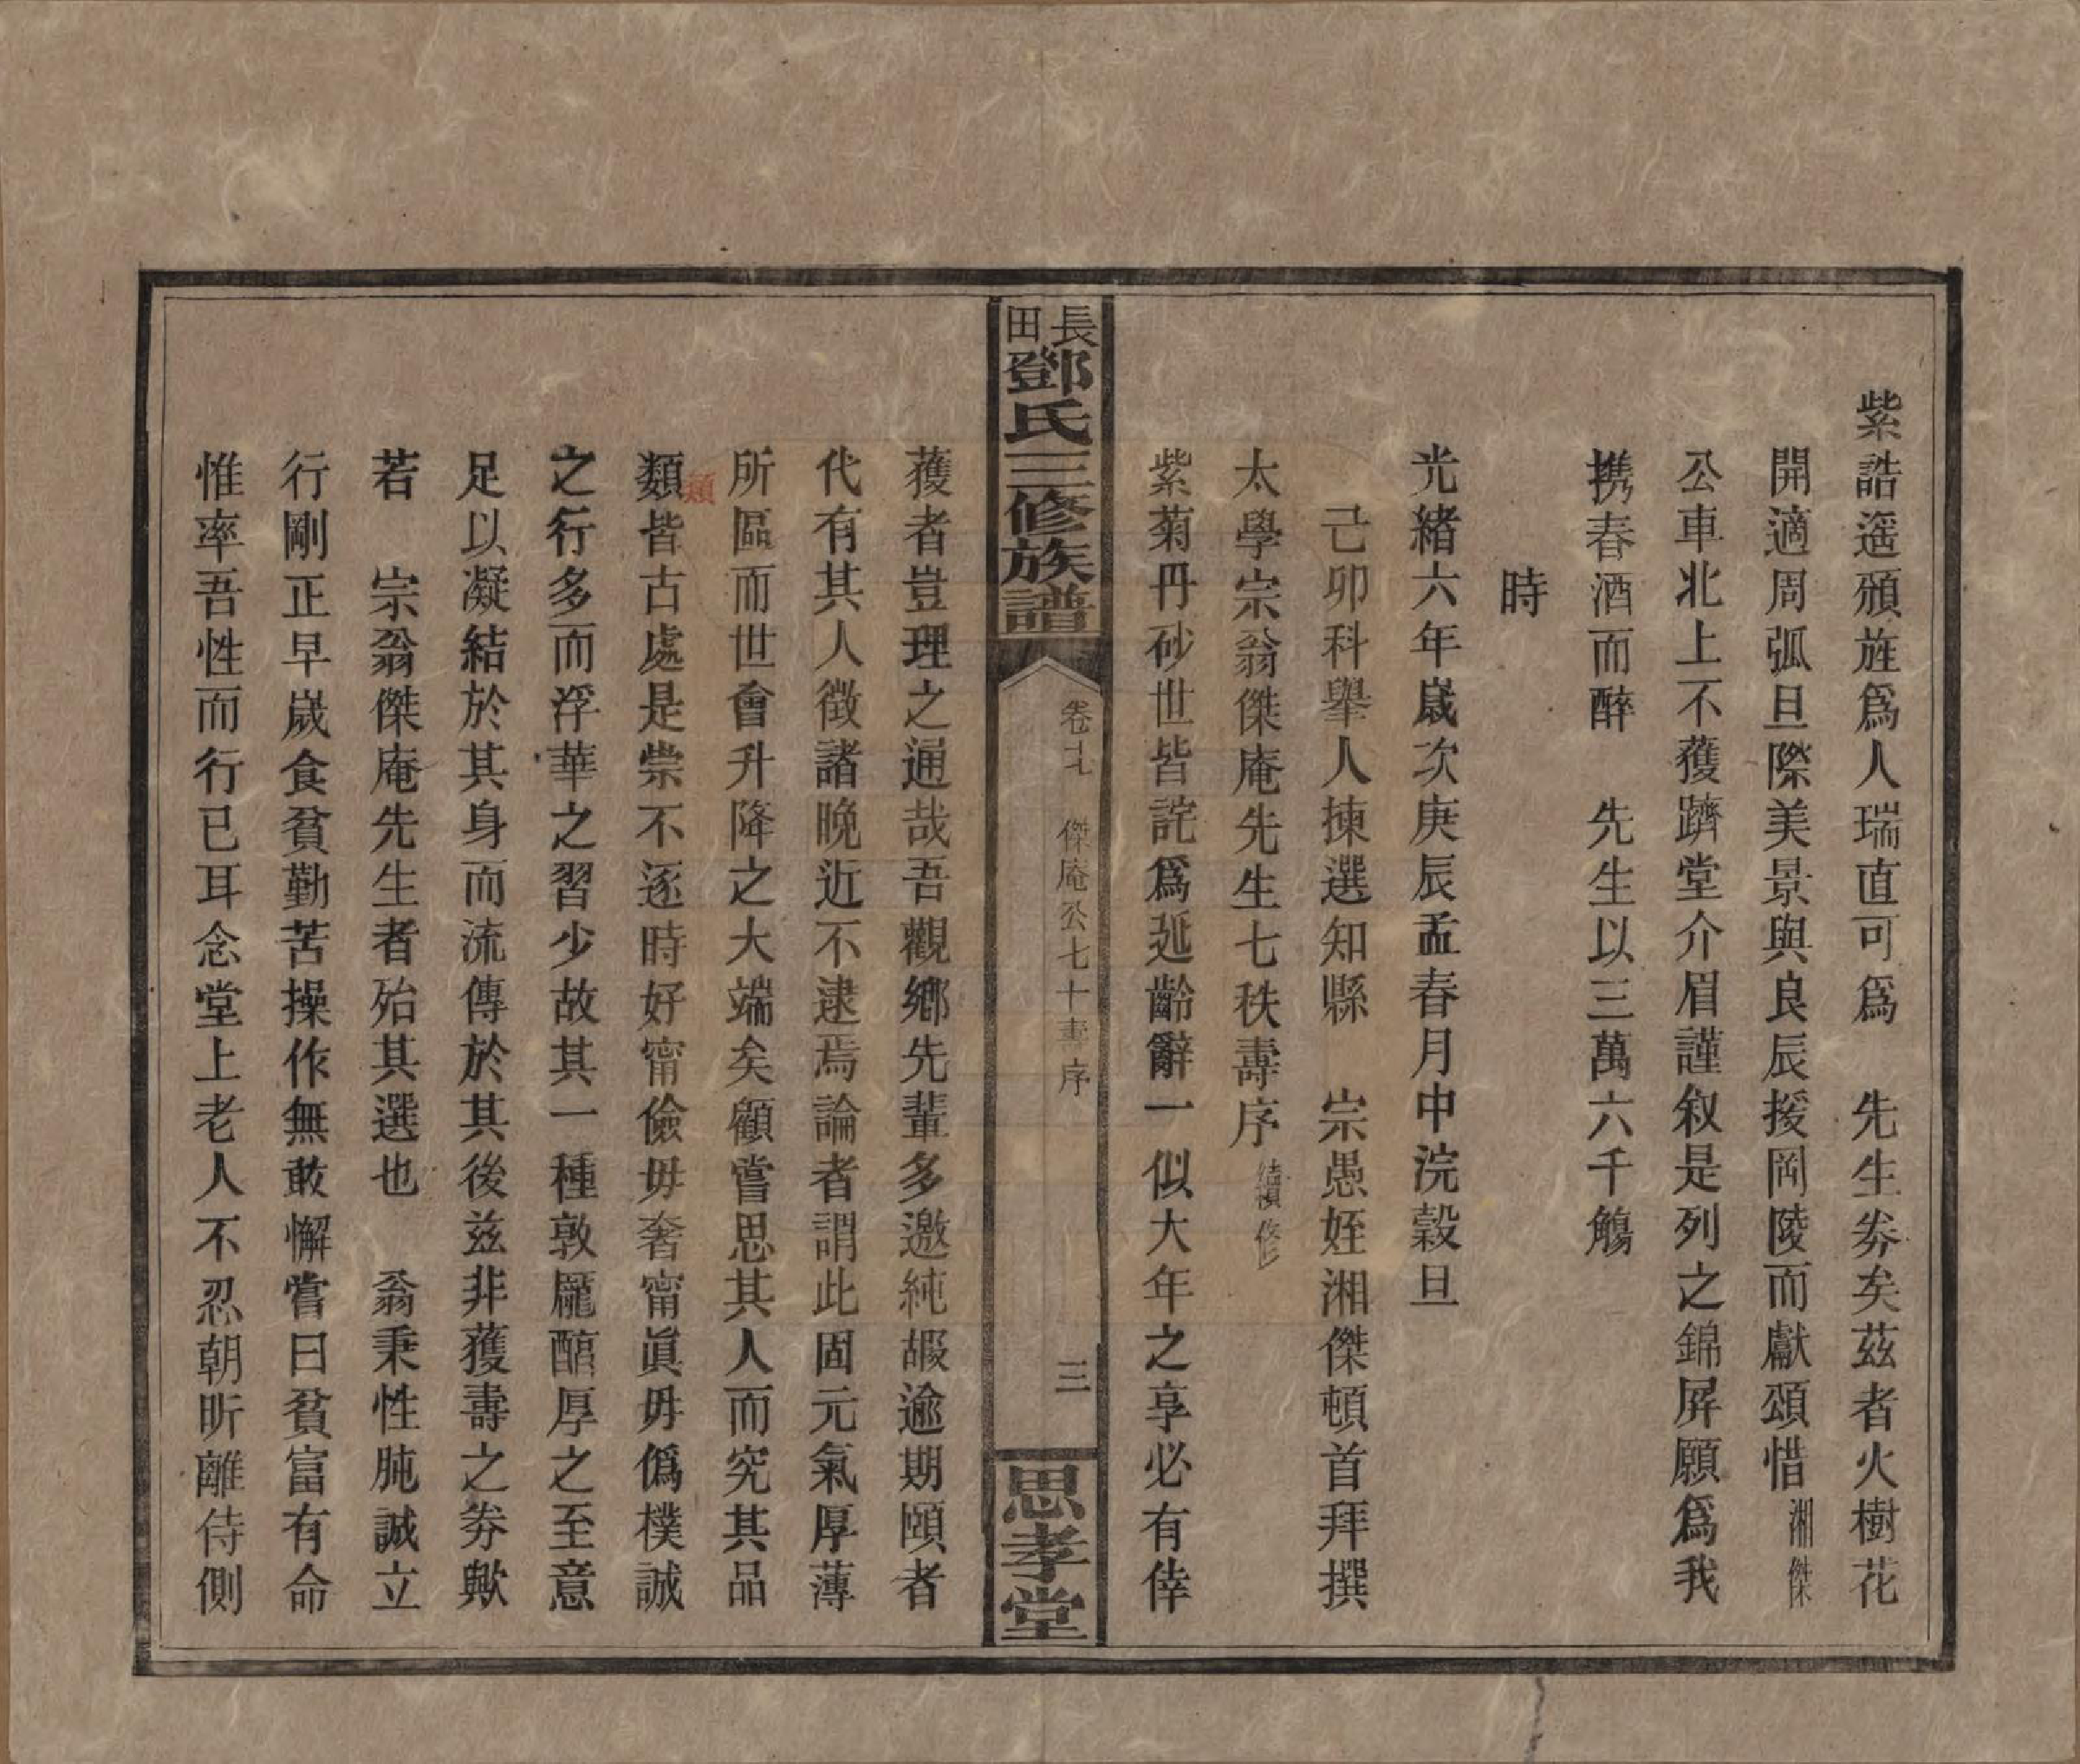 紫誥遥頒旌爲人瑞直可爲　先生券矣茲者火樹花
開適周弧旦際美景與良辰援岡陵而獻頌惜湘傑
公車北上不獲躋堂介眉謹叙是列之錦屏願爲我
携春酒而醉　先生以三萬六千觴
時
光緒六年歲次庚辰孟春月中浣穀旦
己卯科舉人揀選知縣　宗愚姪湘傑頓首拜撰
太學宗翁傑庵先生七秩壽序
紫菊丹砂世皆詫爲延齡辭一似大年之享必有倖
長田鄧氏三修族譜
傑庵公七十壽序
三
思孝堂
獲者豈理之通哉吾觀鄉先輩多邀純嘏逾期頤者
代有其人徵諸晚近不逮焉論者謂此固元氣厚薄
所區而世會升降之大端矣顧嘗思其人而究其品
類
類皆古處是崇不逐時好甯儉毋奢甯眞毋僞樸誠
之行多而浮華之習少故其一種敦龎酷厚之至意
足以凝結於其身而流傳於其後兹非獲壽之券歟
若　宗翁傑庵先生者殆其選也　翁秉性肫誠立
行剛正早歲食貧勤苦操作無敢懈嘗曰貧富有命
惟率吾性而行已耳念堂上老人不忍朝昕離侍側